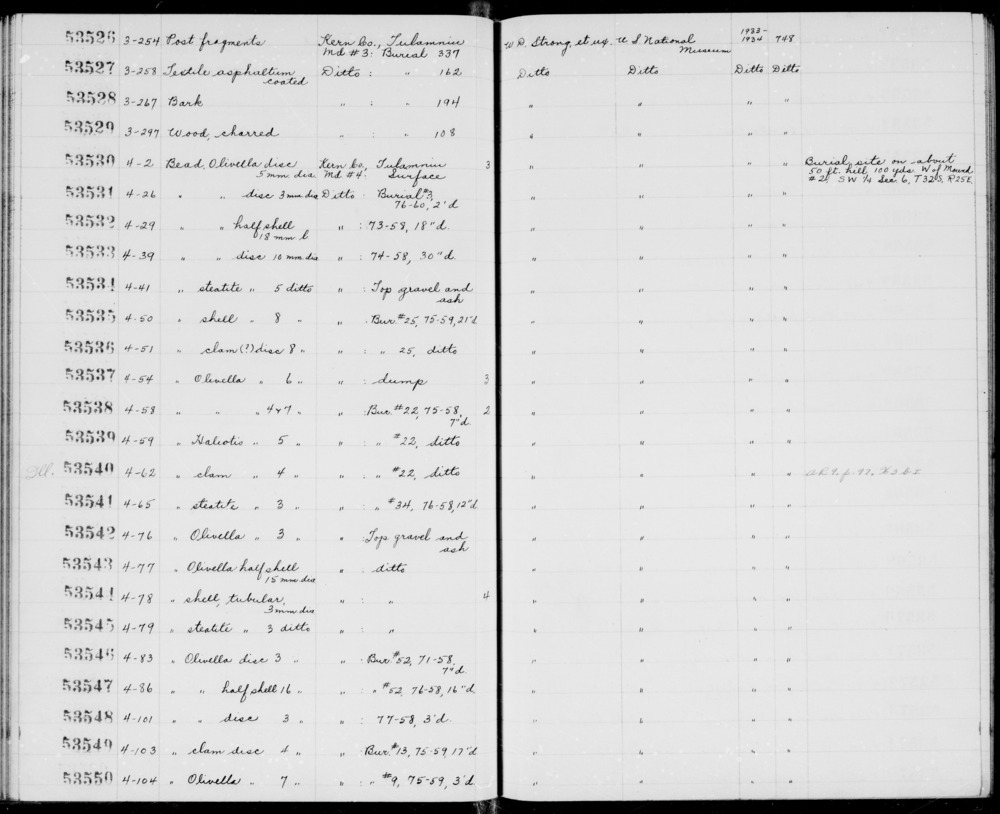 53526 3-254 Post fragments Kern Co., Tulamniu W. D. Strong, et ux. U S National 1933-
Md #3: Burial 337 Museum 1934 748
53527 3-258 Textile asphaltum Ditto : " 162 Ditto Ditto Ditto Ditto
coated
53528 3-267 Bark " : " 194 " " " "
53529 3-297 Wood, charred " : " 108 " " " "
53530 4-2 Bead, Olivella disc Kern Co., Tulamniu 3 " " " " Burial site on about
5 mm. dia Md #4: Surface 50 ft. hill 100 yds. W of Mound
#2. SW 1/4 Sec. 6, T32S, R25E
53531 4-26 " " disc 3 mm dia Ditto : Burial #3, " " " "
76-60, 2' d
53532 4-29 " " half shell " : 73-58, 18" d. " " " "
18 mm l.
53533 4-39 " " disc 10 mm. dia " : 74-58, 30" d. " " " "
53534 4-41 " steatite " 5 ditto " : Top gravel and " " " "
ash
53535 4-50 " shell " 8 " " : Bur. #25, 75-59, 21" d. " " " "
53536 4-51 " clam (?) disc 8 " " : " 25, ditto " " " "
53537 4-54 " Olivella " 6 " " : dump 3 " " " "
53538 4-58 " " " 4 & 7 " " : Bur. #22, 75-58, 2 " " " "
7" d.
53539 4-59 " Haliotis " 5 " " : " #22, ditto " " " "
Ill. 53540 4-62 " clam " 4 " " : " #22, ditto " " " "
53541 4-65 " steatite " 3 " " : " #34, 76-58, 12" d. " " " "
53542 4-76 " Olivella " 3 " " : Top gravel and " " " "
ash
53543 4-77 " Olivella half shell " : ditto " " " "
15 mm. dia
53544 4-78 " shell, tubular, " : " 4 " " " "
3 mm. dia
53545 4-79 " steatite " 3 ditto " : " " " " "
53546 4-83 " Olivella disc 3 " " : Bur. #52, 71-58, " " " "
7" d.
53547 4-86 " " half shell 16 " " : " #52, 76-58, 16" d. " " " "
53548 4-101 " " disc 3 " " : 77-58, 3' d. " " " "
53549 4-103 " clam disc 4 " " : Bur. #13, 75-59, 17" d " " " "
53550 4-104 " Olivella " 7 " " : " #9, 75-59, 3' d. " " " "